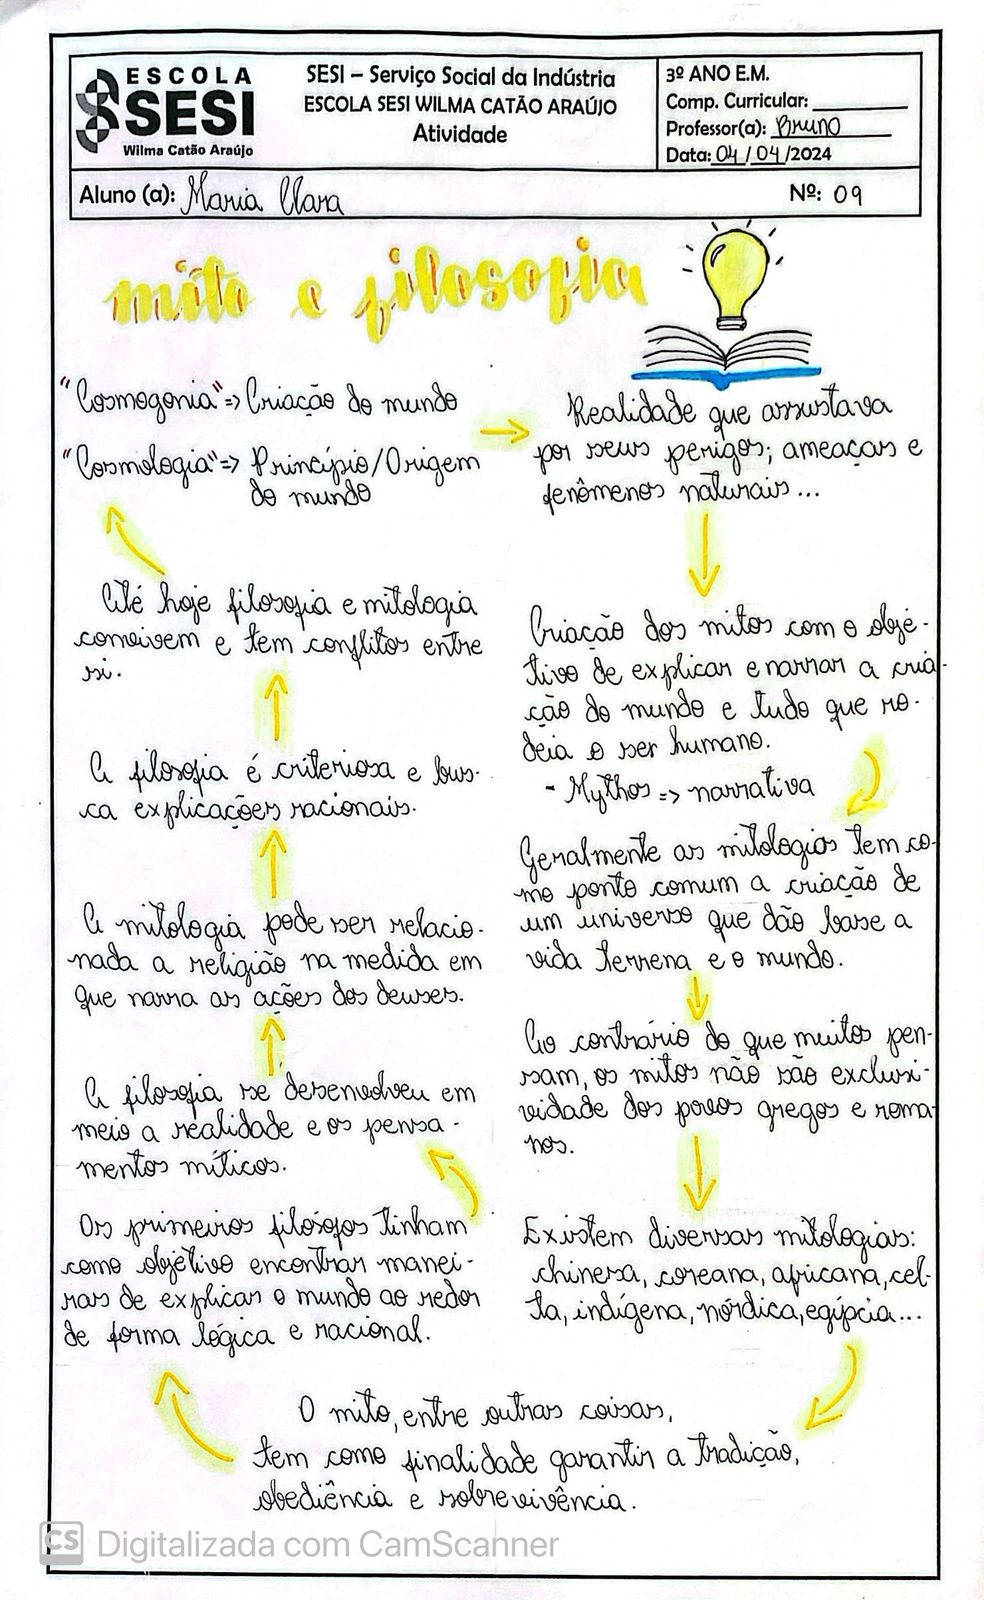 ESCOLA
SESI
Wilma Catão Araújo
SESI – Serviço Social da Indústria
ESCOLA SESI WILMA CATÃO ARAÚJO
Atividade
3º ANO E.M.
Comp. Curricular:
Professor(a): Bruno
Data: 04/04/2024
Aluno (a): Maria Clara
Nº: 09
mito e filosofia
"Cosmogonia" => Criação do mundo
"Cosmologia" => Princípio/Origem
do mundo
Realidade que assustava
por seus perigos; ameaças e
fenômenos naturais...
Criação dos mitos com o obje-
tivo de explicar e narrar a cria-
ção do mundo e tudo que ro-
deia o ser humano.
- Mythos => narrativa
Geralmente as mitologias tem co-
mo ponto comum a criação de
um universo que dão base a
vida terrena e o mundo.
Ao contrário do que muitos pen-
sam, os mitos não são exclusi-
vidade dos povos gregos e roma-
nos.
Existem diversas mitologias:
chinesa, coreana, africana, cel-
ta, indígena, nórdica, egípcia...
O mito, entre outras coisas,
tem como finalidade garantir a tradição,
obediência e sobrevivência.
Os primeiros filósofos tinham
como objetivo encontrar manei-
ras de explicar o mundo ao redor
de forma lógica e racional.
A filosofia se desenvolveu em
meio a realidade e os pensa-
mentos míticos.
A mitologia pode ser relacio-
nada a religião na medida em
que narra as ações dos deuses.
A filosofia é criteriosa e bus-
ca explicações racionais.
Até hoje filosofia e mitologia
convivem e tem conflitos entre
si.
CS Digitalizada com CamScanner